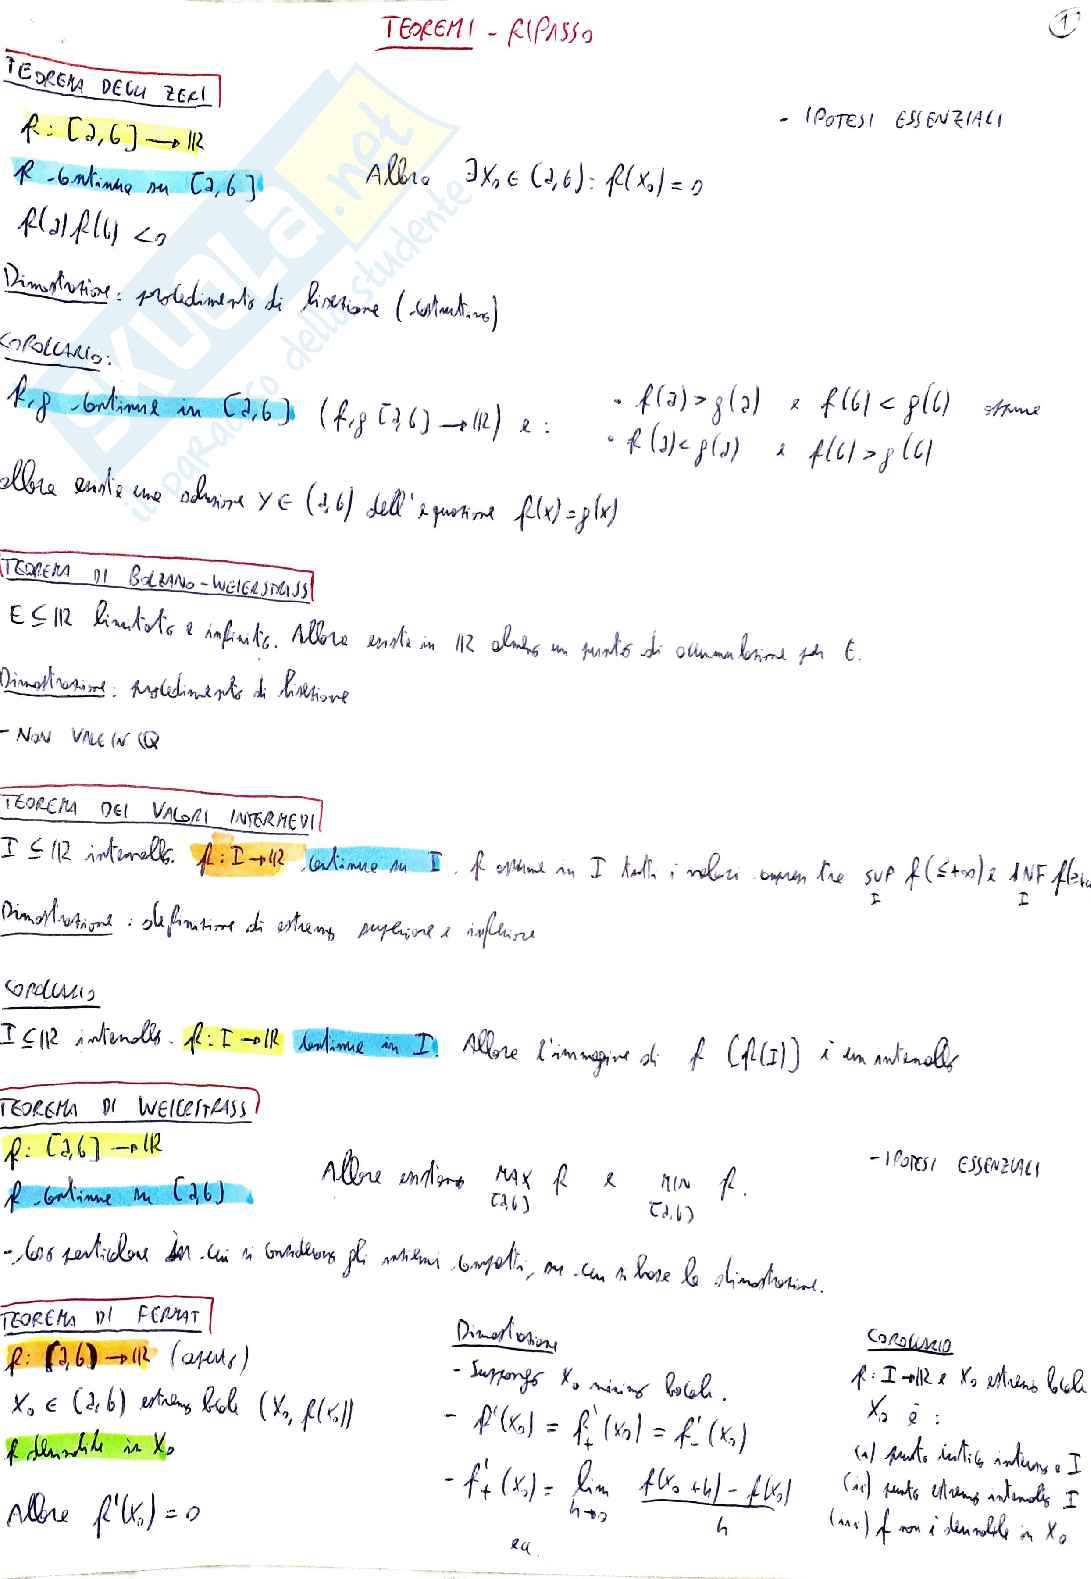 TEOREMI - RIPASSO
1
TEOREMA DEGLI ZERI
f: [a,b] → ℝ
- IPOTESI ESSENZIALI
f continua su [a,b]
Allora ∃x₀ ∈ (a,b): f(x₀) = 0
f(a)f(b) < 0
Dimostrazione: procedimento di bisezione (costruttivo)
COROLLARIO:
f,g continue in [a,b] (f,g [a,b] → ℝ) e:
• f(a) > g(a) e f(b) < g(b) oppure
• f(a) < g(a) e f(b) > g(b)
allora esiste una soluzione y ∈ (a,b) dell'equazione f(x) = g(x)
TEOREMA DI BOLZANO-WEIERSTRASS
E ⊆ ℝ limitato e infinito. Allora esiste in ℝ almeno un punto di accumulazione per E.
Dimostrazione: procedimento di bisezione
- NON VALE IN ℚ
TEOREMA DEI VALORI INTERMEDI
I ⊆ ℝ intervallo. f: I → ℝ continua su I. f assume in I tutti i valori compresi tra SUP f (≤+∞) e INF f
I I
Dimostrazione: definizione di estremo superiore e inferiore
COROLLARIO
I ⊆ ℝ intervallo. f: I → ℝ continua in I. Allora l'immagine di f [f(I)] è un intervallo
TEOREMA DI WEIERSTRASS
f: [a,b] → ℝ
- IPOTESI ESSENZIALI
f continua su [a,b]
Allora esistono MAX f e MIN f.
[a,b] [a,b]
- Caso particolare in cui si considerano gli insiemi compatti, su cui si basa la dimostrazione.
TEOREMA DI FERMAT
f: (a,b) → ℝ (aperto)
x₀ ∈ (a,b) estremo locale (x₀, f(x₀))
f derivabile in x₀
Allora f'(x₀) = 0
Dimostrazione
- Suppongo x₀ minimo locale.
- f'(x₀) = f'₊(x₀) = f'₋(x₀)
- f'₊(x₀) = lim f(x₀+h) - f(x₀)
h→0 h
COROLLARIO
f: I → ℝ e x₀ estremo locale
x₀ è:
(i) punto critico interno a I
(ii) punto estremo intervallo I
(iii) f non è derivabile in x₀
SKUOLA.net
il paradiso dello studente